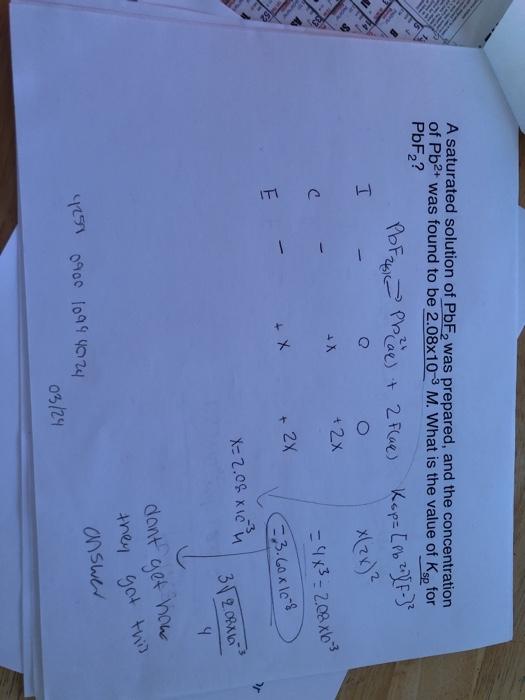 A saturated solution of PbF₂ was prepared, and the concentration
of Pb²⁺ was found to be 2.08x10⁻³ M. What is the value of Ksp for
PbF₂?
PbF₂(s) ⇌ Pb²⁺(aq) + 2F(aq) Ksp = [Pb²⁺][F⁻]²
I - 0 0 x(2x)²
C - +x +2x = 4x³ = 2.08x10⁻³
E - +x +2x = 3.60x10⁻⁸
x = 2.08x10⁻³
3√2.08x10⁻³
4
dont get how
they got this
answer
03/24